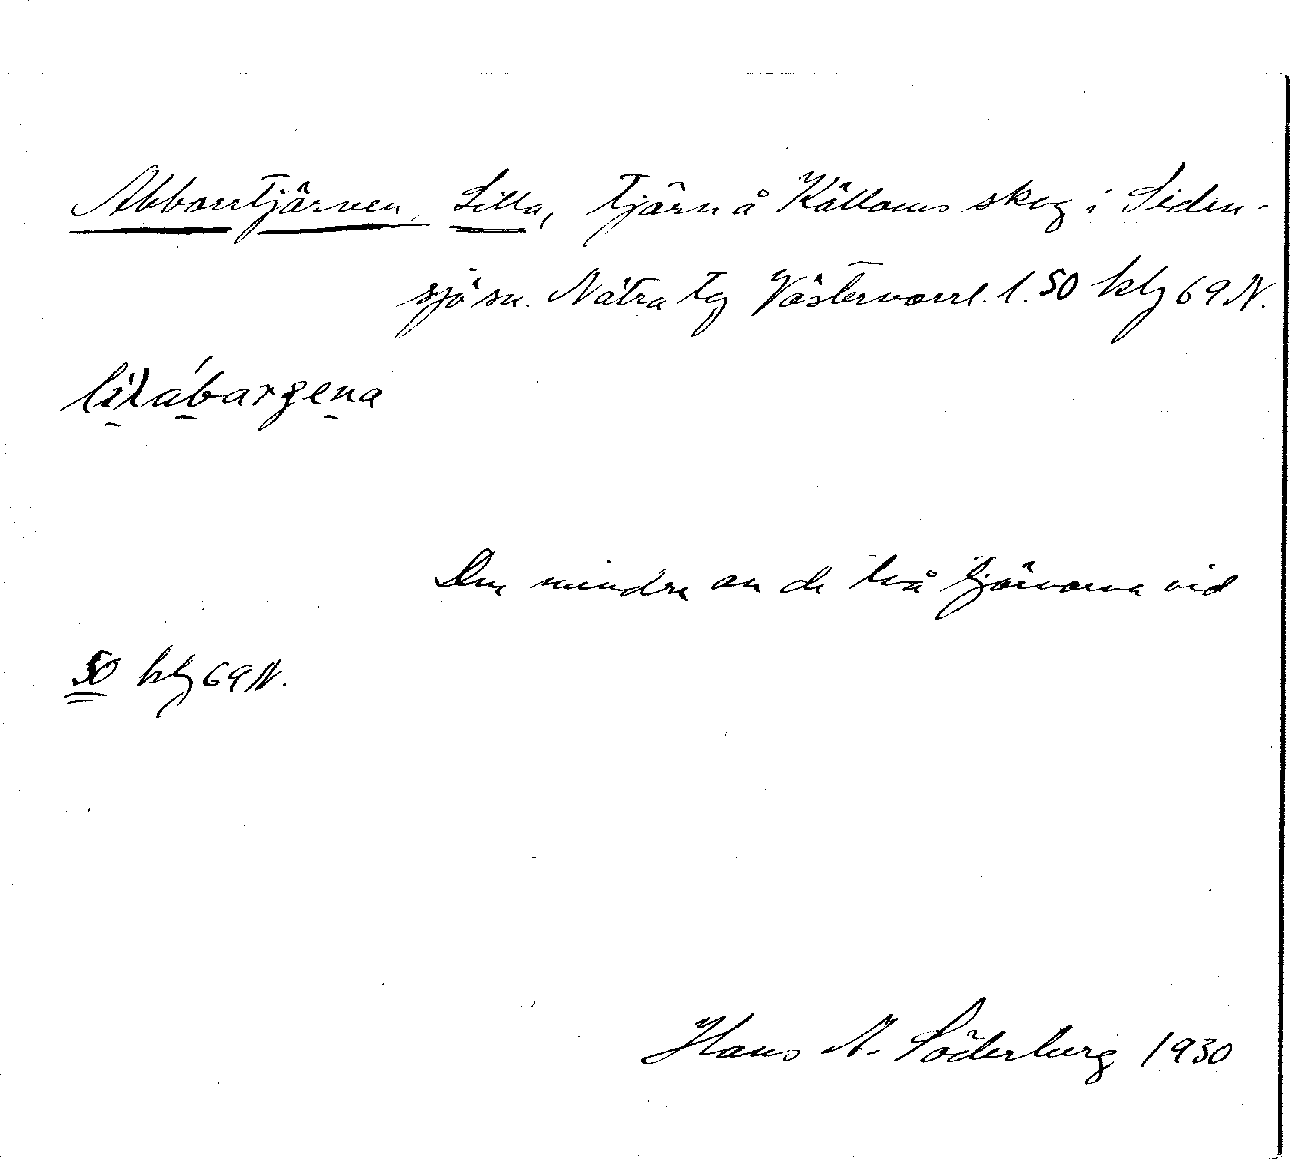 Abborrtjärnen, Lilla, tjärn å Källoms skog i Siden-
sjö sn. Nätra tg Västernorrl. l. 50 klz 69 N.
Den mindre av de två tjärnarna vid
50 klz 69 N.
Hans N. Söderberg 1930